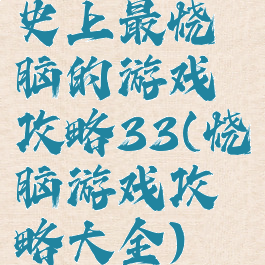 史上最烧
脑的游戏
攻略33(烧
脑游戏攻
略大全)